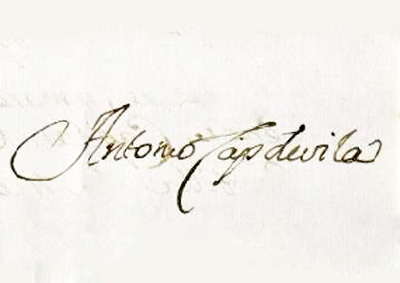 Antonio Capdevila